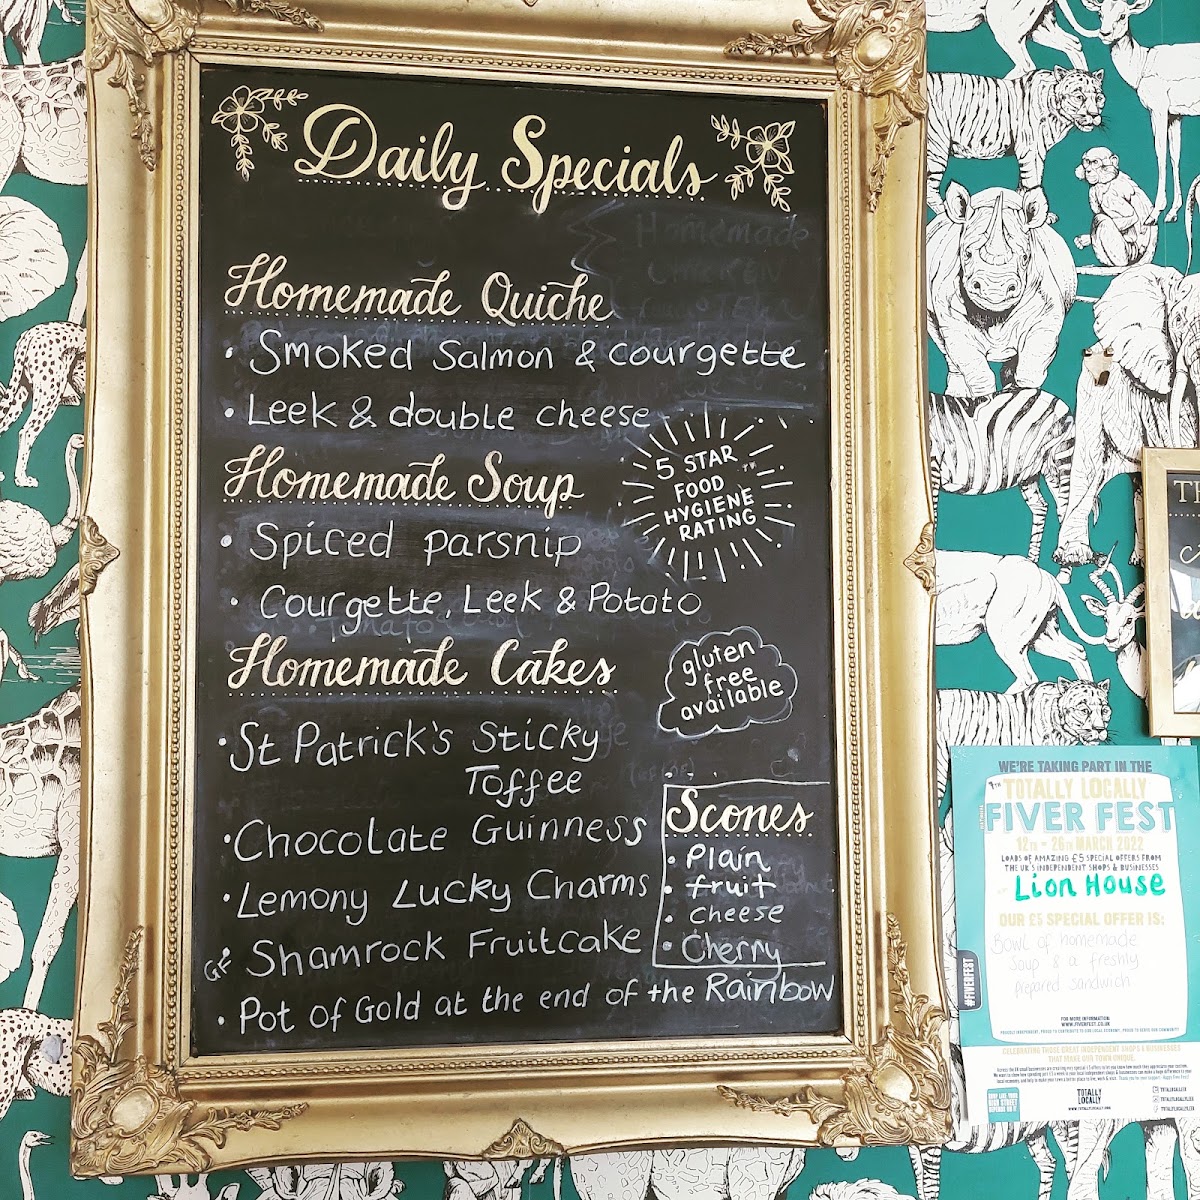 Daily Specials
Homemade Quiche
• Smoked Salmon & courgette
• Leek & double cheese
5 STAR
FOOD
HYGIENE
RATING
Homemade Soup
• Spiced parsnip
• Courgette, Leek & Potato
gluten
free
available
Homemade Cakes
• St Patrick's Sticky
Toffee
• Chocolate Guinness
• Lemony Lucky Charms
GF Shamrock Fruitcake
• Pot of Gold at the end of the Rainbow
Scones
• Plain
• fruit
• cheese
• Cherry
WE'RE TAKING PART IN THE
TOTALLY LOCALLY
FIVER FEST
12TH - 26TH MARCH 2022
LOADS OF AMAZING £5 SPECIAL OFFERS FROM
THE UK'S INDEPENDENT SHOPS & BUSINESSES
Lion House
OUR £5 SPECIAL OFFER IS:
Bowl of homemade
Soup & a freshly
prepared sandwich
#FIVERFEST
FOR MORE INFORMATION
WWW.FIVERFEST.CO.UK
CELEBRATING THOSE GREAT INDEPENDENT SHOPS & BUSINESSES
THAT MAKE OUR TOWN UNIQUE.
TOTALLY
LOCALLY
WWW.TOTALLYLOCALLY.ORG